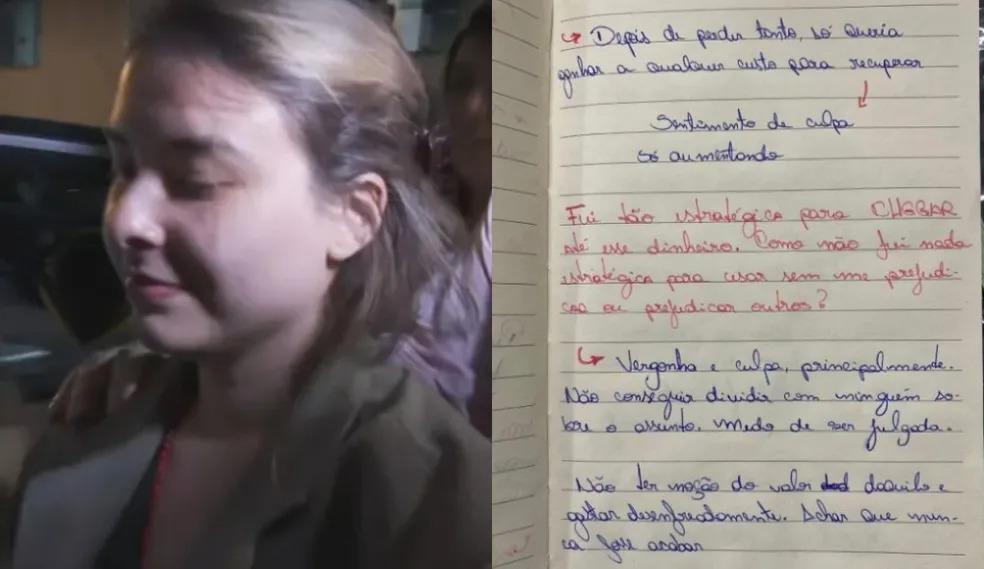 Depois de perder tanto, só queria
ganhar a qualquer custo para recuperar
Sentimento de culpa
só aumentando
Fui tão estratégica para CHEGAR
até esse dinheiro. Como não fui nada
estratégica para usar sem me prejudi-
car ou prejudicar outros?
Vergonha e culpa, principalmente.
Não conseguir dividir com ninguém so-
bre o assunto. Medo de ser julgada.
Não ter noção do valor daquilo e
gastar desenfreadamente. Achar que nun-
ca fosse acabar